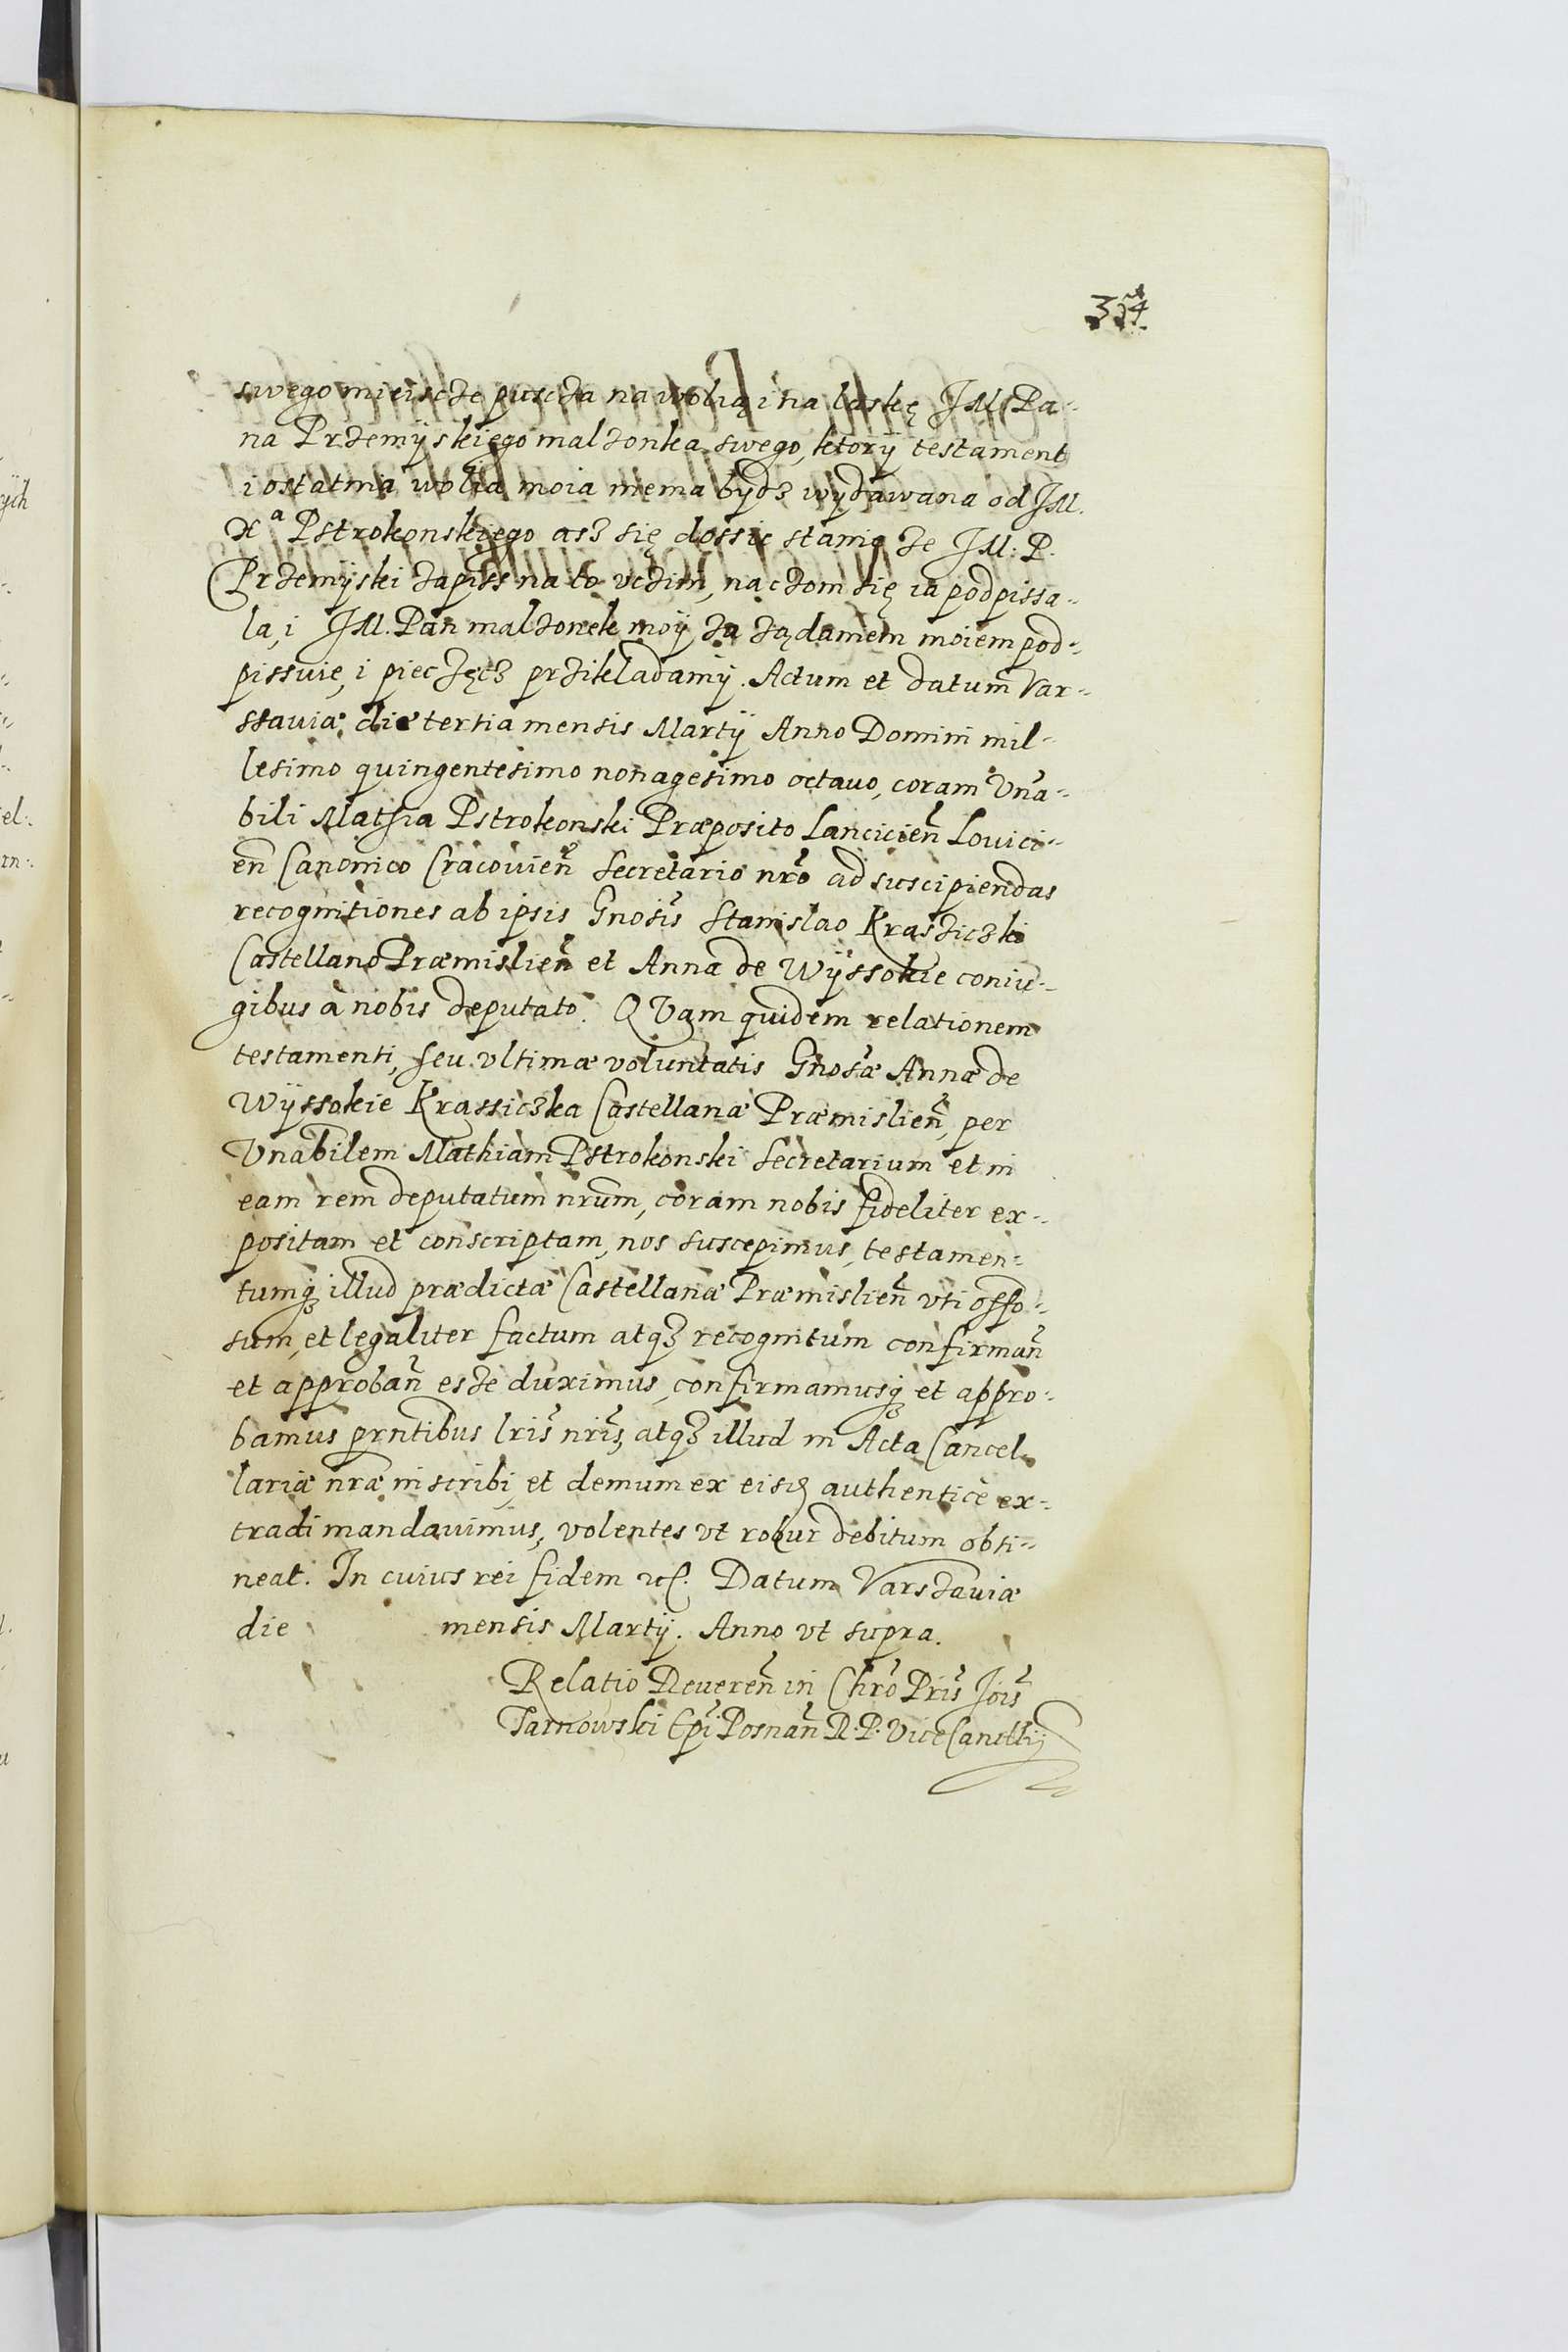 314
swego mieiscze puscza na wolią i na laskę JM. Pa-
na Przemÿskiego malzonka swego, ktorÿ testament
i ostatnia wolia moia niema bydz wÿdawana od JM.
Xa Pstrokonskiego asz się dossic stanie ze JM: P.
Przemÿski zapiss na to vczini, na czom się ia podpissa-
la, i JM. Pan malzonek moÿ za żądaniem moiem pod-
pissuie, i pieczęcz przikladamÿ. Actum et datum Var-
ssauiæ die tertia mensis Martÿ Anno Domini mil-
lesimo quingentesimo nonagesimo octauo, coram Vna-
bili Mathia Pstrokonski Præposito Lancicien̄ Louici-
en̄ Canonico Cracouien̄ Secretario nr̄o ad suscipiendas
recognitiones ab ipsis Gnosis Stanislao Krasziczki
Castellano Præmislien̄ et Anna de Wÿssokie coniu-
gibus à nobis deputato. QVam quidem relationem
testamenti, seu vltimæ voluntatis Gnosæ Annæ de
Wÿssokie Krassiczka Castellanæ Præmislien̄, per
Vnabilem Mathiam Pstrokonski Secretarium et in
eam rem deputatum nr̄um, coram nobis fideliter ex-
positam et conscriptam, nos suscepimus, testamen-
tumq3 illud prædictæ Castellanæ Præmislien̄ vti offo-
sum, et legaliter factum atq3 recognitum confirman̄
et approban̄ esze duximus, confirmamusq3 et appro-
bamus prn̄tibus lr̄is nr̄is, atq3 illud in Acta Cancel-
lariæ nr̄æ inscribi, et demum ex eisd authenticè ex-
tradi mandauimus, volentes vt robur debitum obti-
neat. In cuius rei fidem etc. Datum Varszauiæ
die mensis Martÿ. Anno vt supra.
Relatio Reueren̄ in Chr̄o Pr̄is Jois
Tarnowski Ep̄i Posnan̄ R. P. ViceCancllÿ